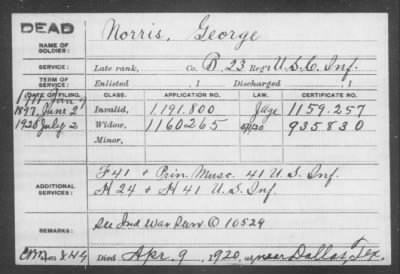 DEAD
NAME OF SOLDIER: Norris, George
SERVICE: Late rank, Co. B, 23 Reg't U.S.C. Inf.
TERM OF SERVICE: Enlisted , 1 Discharged , 1
DATE OF FILING. CLASS. APPLICATION NO. LAW. CERTIFICATE NO.
1897, June 2 Invalid, 1.191.800 1159.257
1920 July 2 Widow, 1160265 935830
Minor,
ADDITIONAL SERVICES: F 41 & Prin. Musc. 41 U.S. Inf.
H 24 & H 41 U.S. Inf.
REMARKS: See Ind War Surv © 10529
Died Apr. 9, 1920, at near Dallas, Tex.